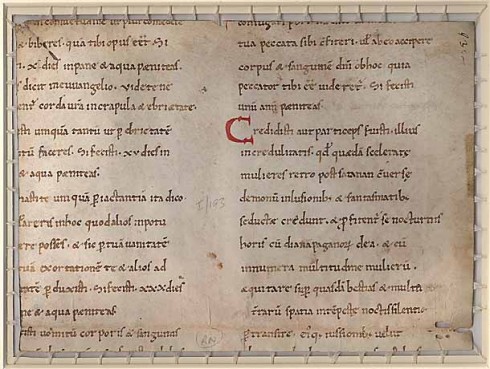 & biberes. quā tibi opus eēt. Si
x. dies in pane & aqua peniteas.
dicit in euuangelio. uidete ne
corda ura in crapula & ebrietate.
umquā tantū ut p ebrietatē
faceres. Si fecisti. xv dies in
ae & aqua peniteas.
umquā p iactantiā ita dico
in hoc quod alios in potu
ere posses. & sic p tuā uanitatē
tuā exortationē te & alios ad
tatē pduxisti. Si fecisti. xxx dies
ne & aqua peniteas
uomitū corporis & sanguinis
tua peccata sibi cfiteri. ul ab eo accipere
corpus & sanguinē dni ob hoc quia
peccator tibi eē uideret. Si fecisti
unū annū peniteas.
Credidisti aut particeps fuisti illius
incredulitatis. qd quedā scelerate
mulieres retro post satanan cuerse
demonū inlusionib & fantasmatib
seducte credunt. & pfitent se nocturnis
horis cū diana paganor dea. & cū
innumera multitudine mulierū.
& quitare sup quasdā bestias & multa
trarū spatia intepeste noctis silentio
ptransire. eiq iussionib uelut